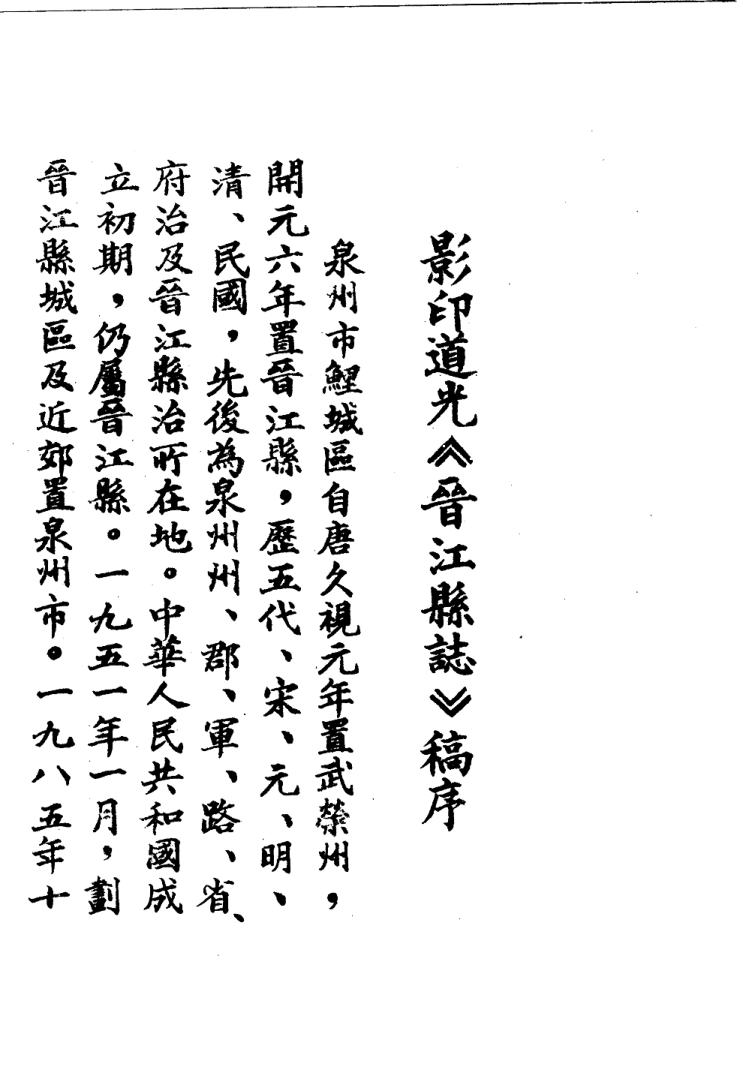 影印道光《晉江縣誌》稿序
泉州市鯉城區自唐久視元年置武榮州，
開元六年置晉江縣，歷五代、宋、元、明、
清、民國，先後為泉州州、郡、軍、路、省、
府治及晉江縣治所在地。中華人民共和國成
立初期，仍屬晉江縣。一九五一年一月，劃
晉江縣城區及近郊置泉州市。一九八五年十